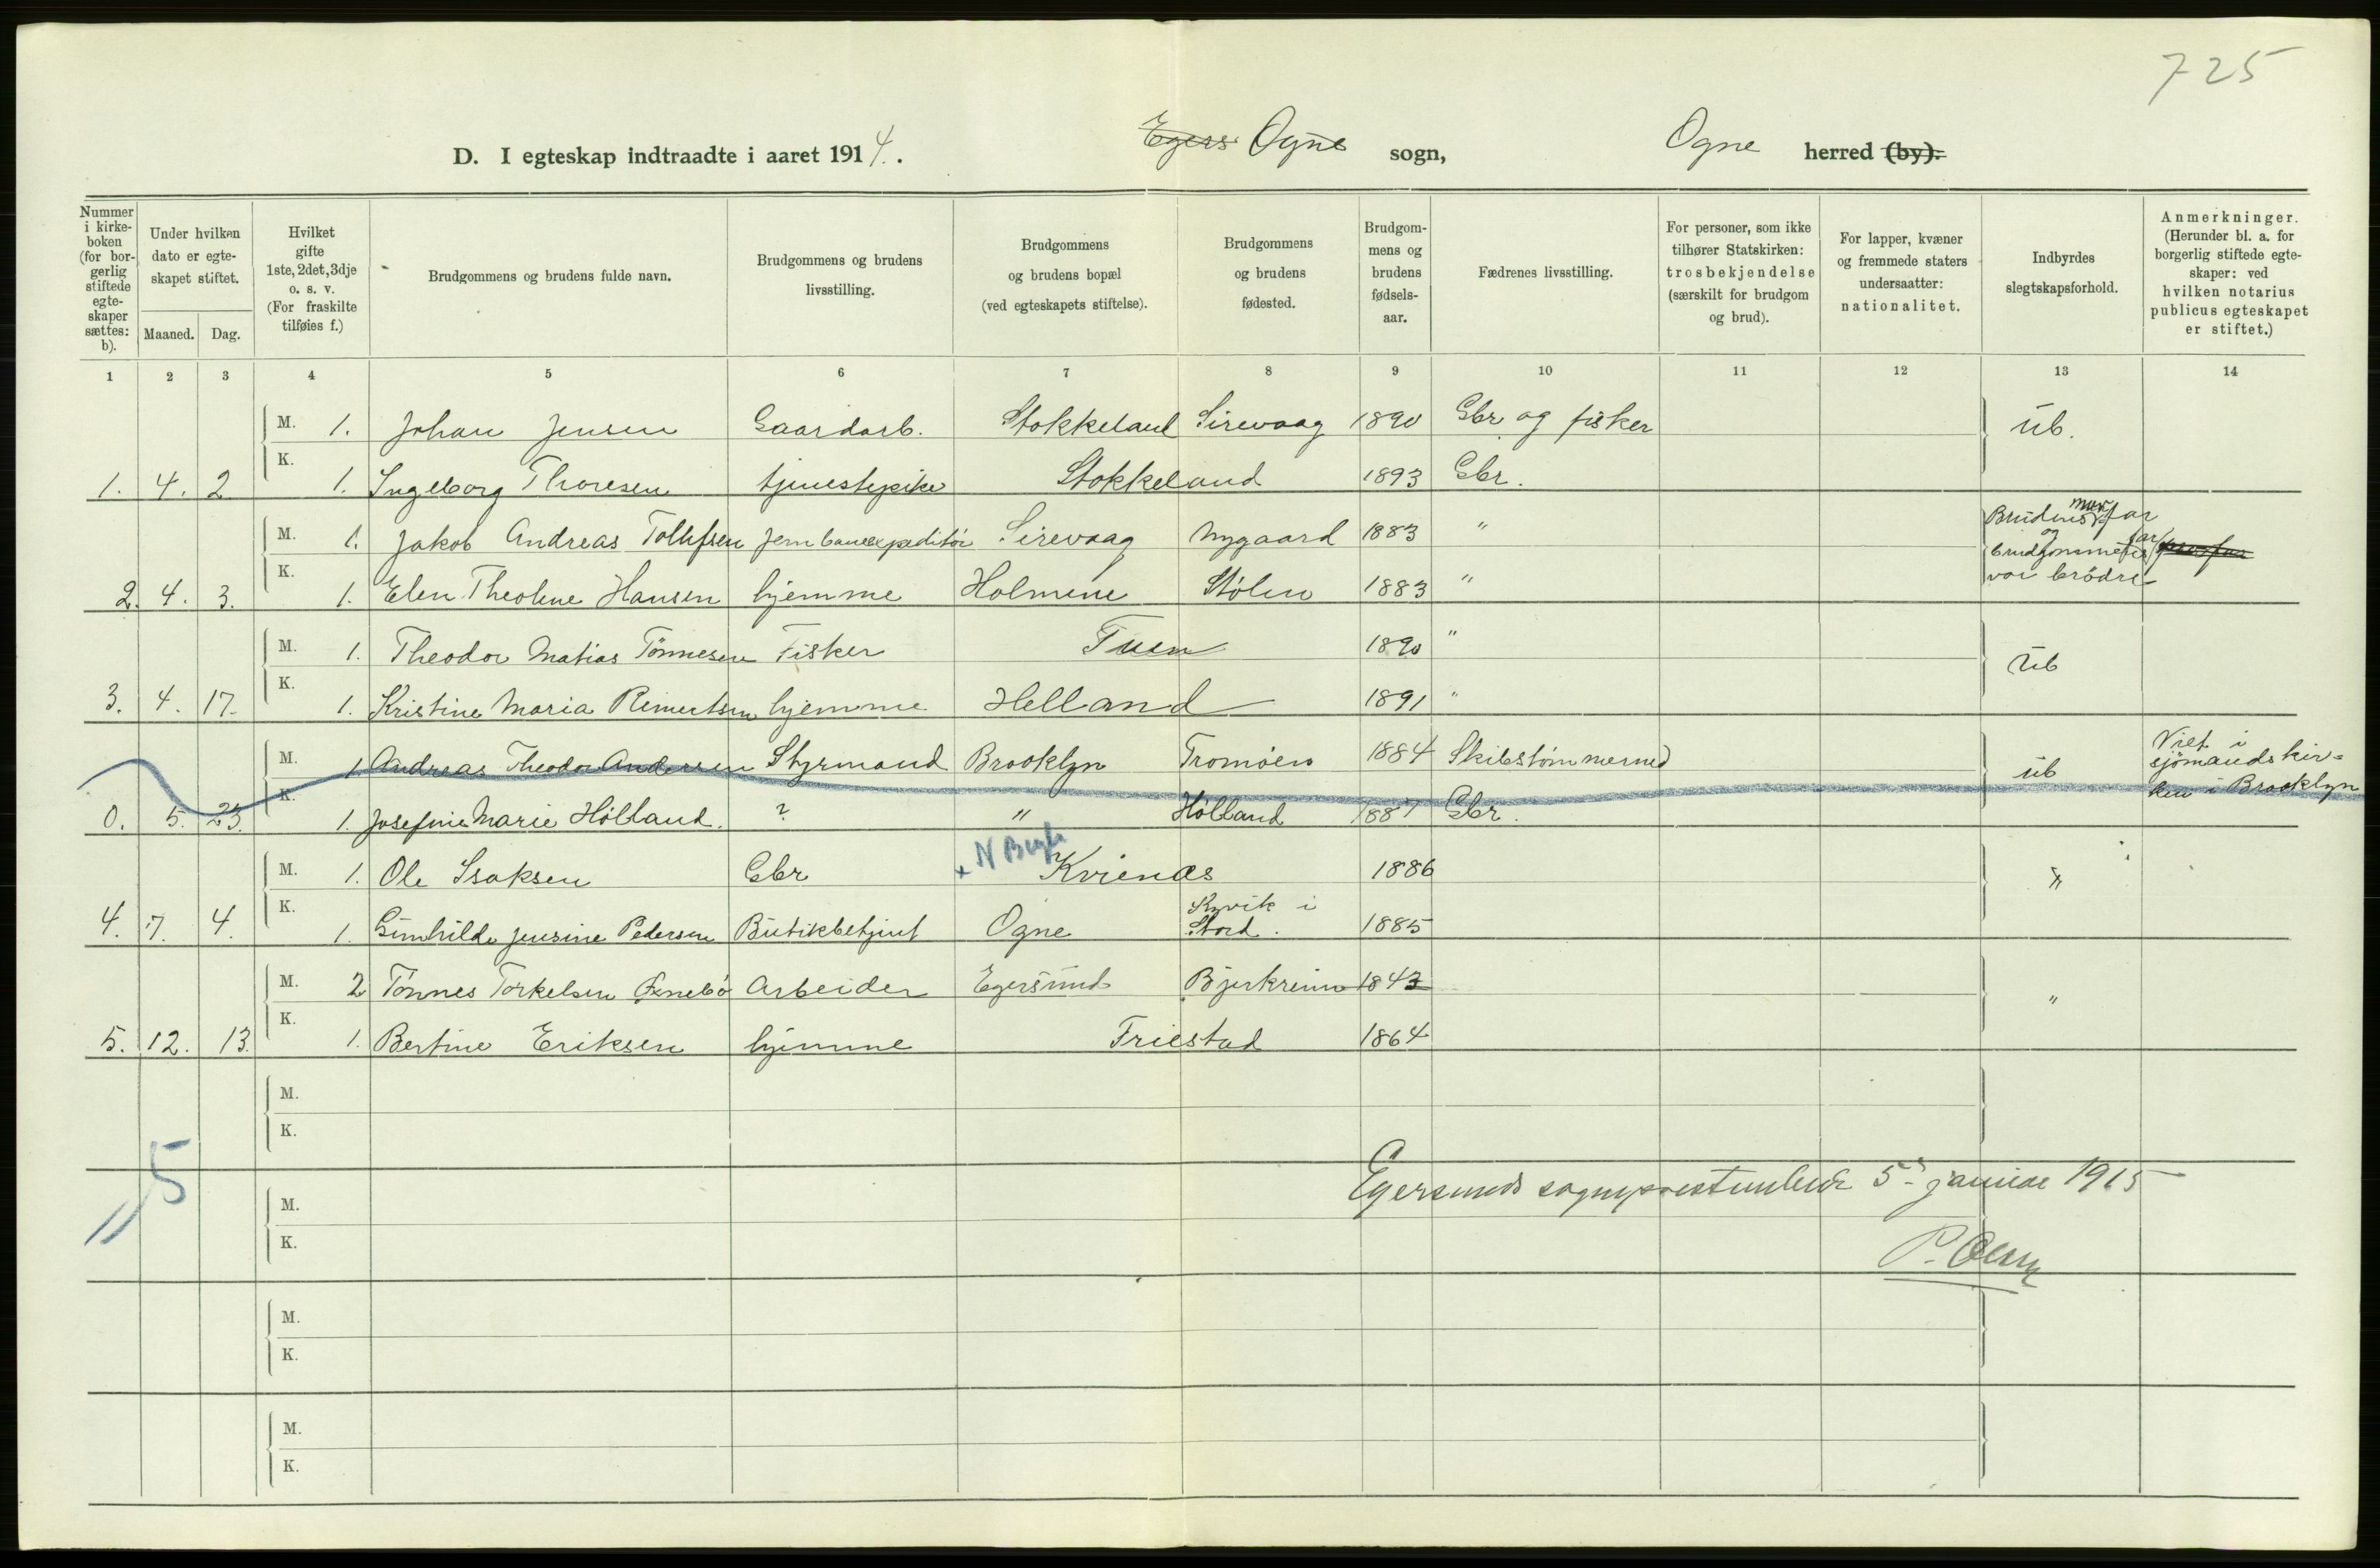 725
D. I egteskap indtraadte i aaret 1914. Egers Ogne sogn, Ogne herred (by).
Nummer i kirke-boken (for bor-gerlig stiftede egte-skaper sættes: b).
Under hvilken dato er egte-skapet stiftet.
Maaned. Dag.
Hvilket gifte 1ste, 2det, 3dje o. s. v. (For fraskilte tilføies f.)
Brudgommens og brudens fulde navn.
Brudgommens og brudens livsstilling.
Brudgommens og brudens bopæl (ved egteskapets stiftelse).
Brudgommens og brudens fødested.
Brudgom-mens og brudens fødsels-aar.
Fædrenes livsstilling.
For personer, som ikke tilhører Statskirken: trosbekjendelse (særskilt for brudgom og brud).
For lapper, kvæner og fremmede staters undersaatter: nationalitet.
Indbyrdes slegtskapsforhold.
Anmerkninger. (Herunder bl. a. for borgerlig stiftede egte-skaper: ved hvilken notarius publicus egteskapet er stiftet.)
1 2 3 4 5 6 7 8 9 10 11 12 13 14
M. 1. Johan Jensen Gaardarb. Stokkeland Sirevaag 1890 Gbr og fisker ub.
1. 4. 2 K. 1. Ingeborg Thoresen tjenestepike Stokkeland 1893 Gbr.
M. 1. Jakob Andreas Tollefsen Jernbaneexpeditör Sirevaag Nygaard 1883 " Brudens morfar og brudgommens farfar
2. 4. 3. K. 1. Elen Theoline Hansen hjemme Holmene Stölen 1883 " var brödre
M. 1. Theodor Matias Tönnesen Fisker Tuen 1890 " ub
3. 4. 17. K. 1. Kristine Maria Reinertsen hjemme Helland 1891 "
M. 1 Andreas Theodor Andersen Styrmand Brooklyn Tromöen 1884 Skibstömmermd ub Viet i sjömandskir-ken i Brooklyn
0. 5. 23. K. 1. Josefine Marie Hölland. ? " Hölland 1887 Gbr.
M. 1. Ole Isaksen Gbr × N Kvienes 1886 "
4. 7. 4. K. 1. Gunhilde Jensine Pedersen Butikbetjent Ogne i Stord. 1885
M. 2 Tönnes Torkelsen Arbeider Egersund Bjerkreim 1843 "
5. 12. 13. K. 1. Bertine Eriksen hjemme Friestad 1864
M.
K.
5
Egersunds sogneprestembede 5- januar 1915
M.
K.
P. Olsen
M.
K.
M.
K.